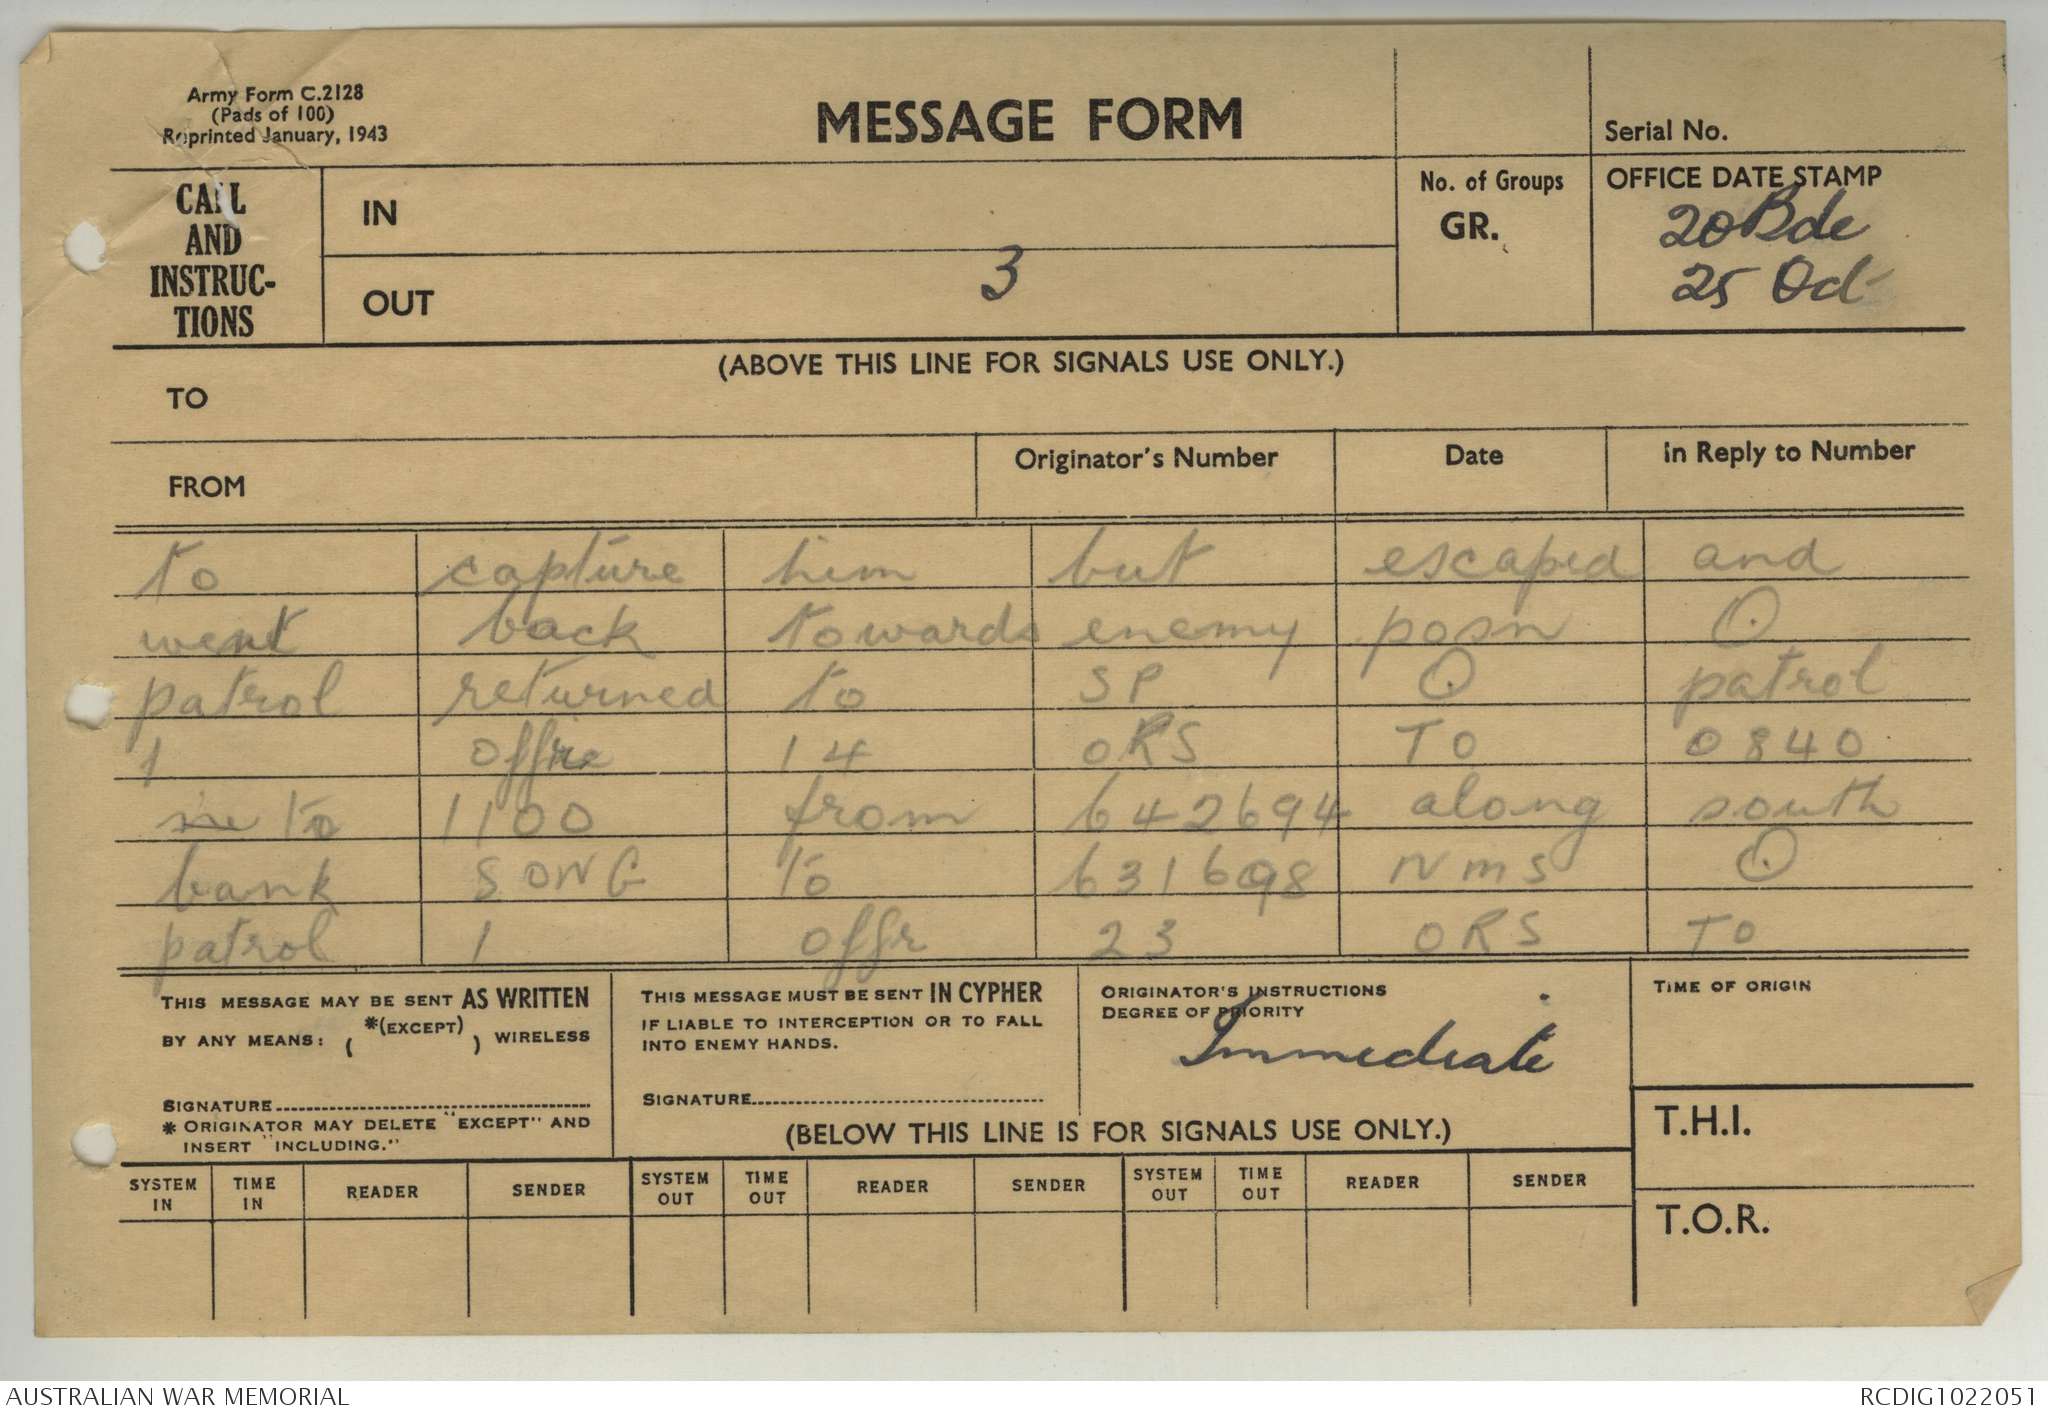 Army Form C.2128
(Pads of 100)
Reprinted January, 1943
MESSAGE FORM
Serial No.
CALL
AND
INSTRUC-
TIONS
IN
OUT
3
No. of Groups
GR.
OFFICE DATE STAMP
20 Bde
25 Oct
(ABOVE THIS LINE FOR SIGNALS USE ONLY.)
TO
FROM
Originator's Number
Date
In Reply to Number
to capture him but escaped and
went back towards enemy posn O
patrol returned to SP O patrol
1 14 ORS TO 0840
to 1100 from 642694 along south
bank SONG to 631698 NMS O
patrol 1 offr 23 ORS TO
THIS MESSAGE MAY BE SENT AS WRITTEN
BY ANY MEANS: ( *(EXCEPT) ) WIRELESS
SIGNATURE
* ORIGINATOR MAY DELETE "EXCEPT" AND
INSERT "INCLUDING."
THIS MESSAGE MUST BE SENT IN CYPHER
IF LIABLE TO INTERCEPTION OR TO FALL
INTO ENEMY HANDS.
SIGNATURE
ORIGINATOR'S INSTRUCTIONS
DEGREE OF PRIORITY
Immediate
TIME OF ORIGIN
(BELOW THIS LINE IS FOR SIGNALS USE ONLY.)
T.H.I.
T.O.R.
SYSTEM IN
TIME IN
READER
SENDER
SYSTEM OUT
TIME OUT
READER
SENDER
SYSTEM OUT
TIME OUT
READER
SENDER
AUSTRALIAN WAR MEMORIAL
RCDIG1022051